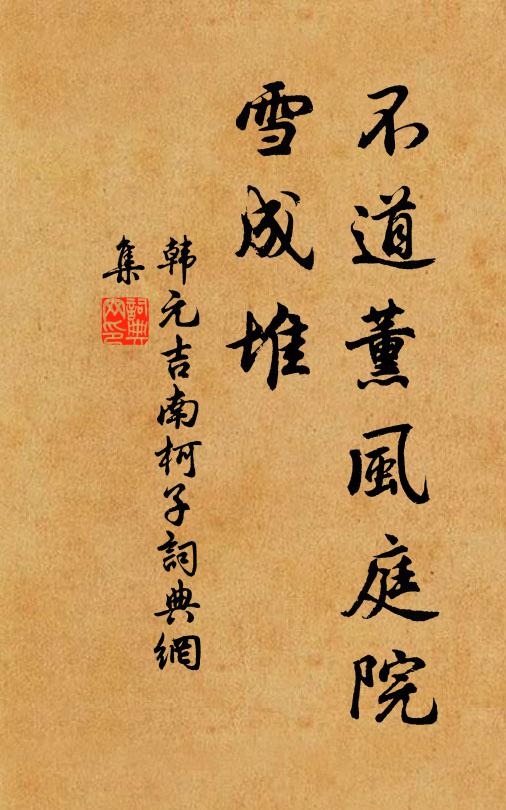 不道薰風庭院
雪成堆
韩元吉南柯子詞典網
集
詞典
网印